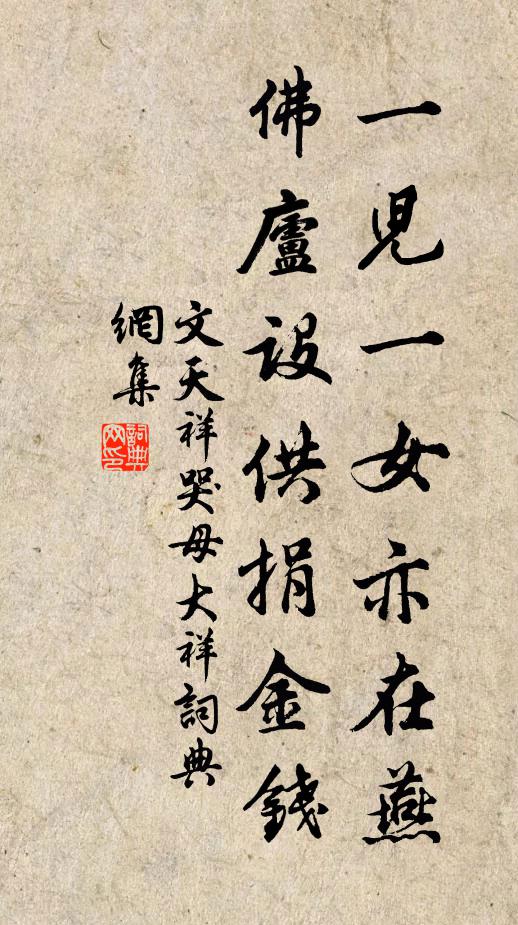 一兒一女亦在燕
佛廬設供捐金錢
文天祥哭母大祥詞典
網集
詞典
网印